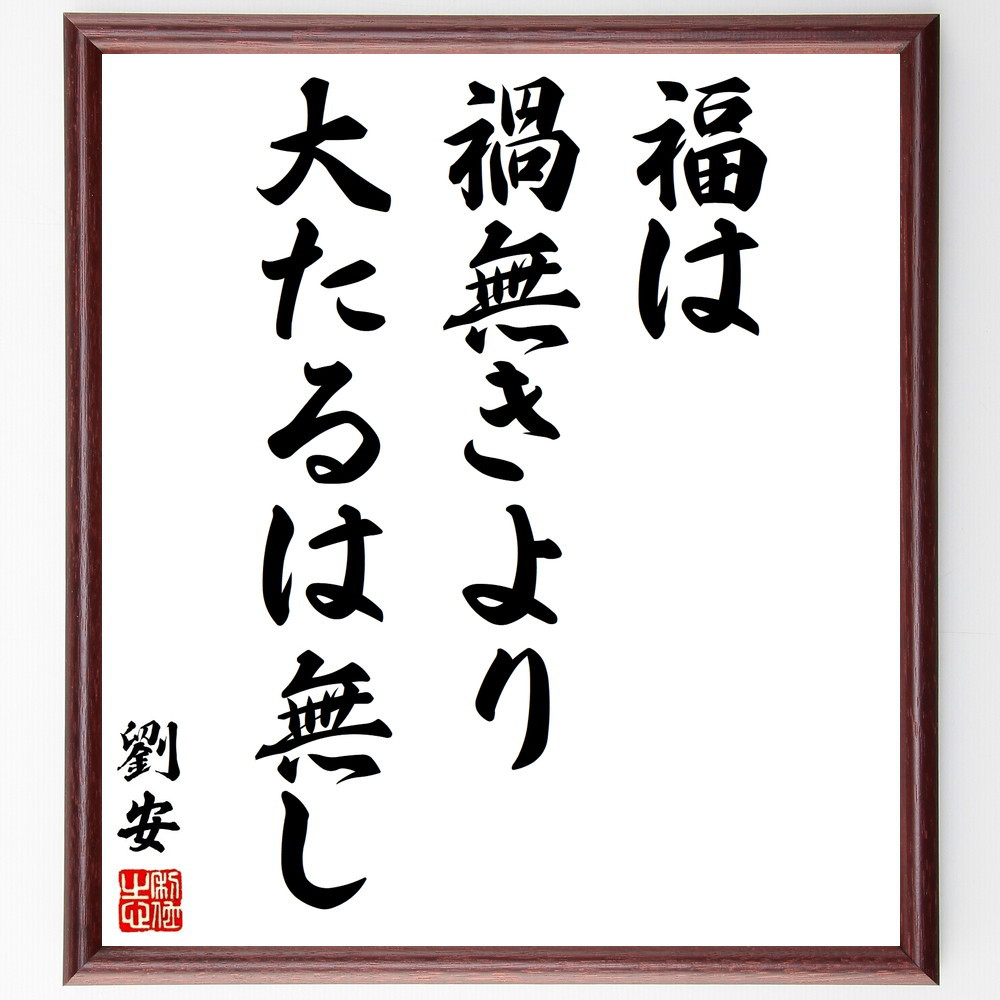 福は
禍無きより
大たるは無し
劉安